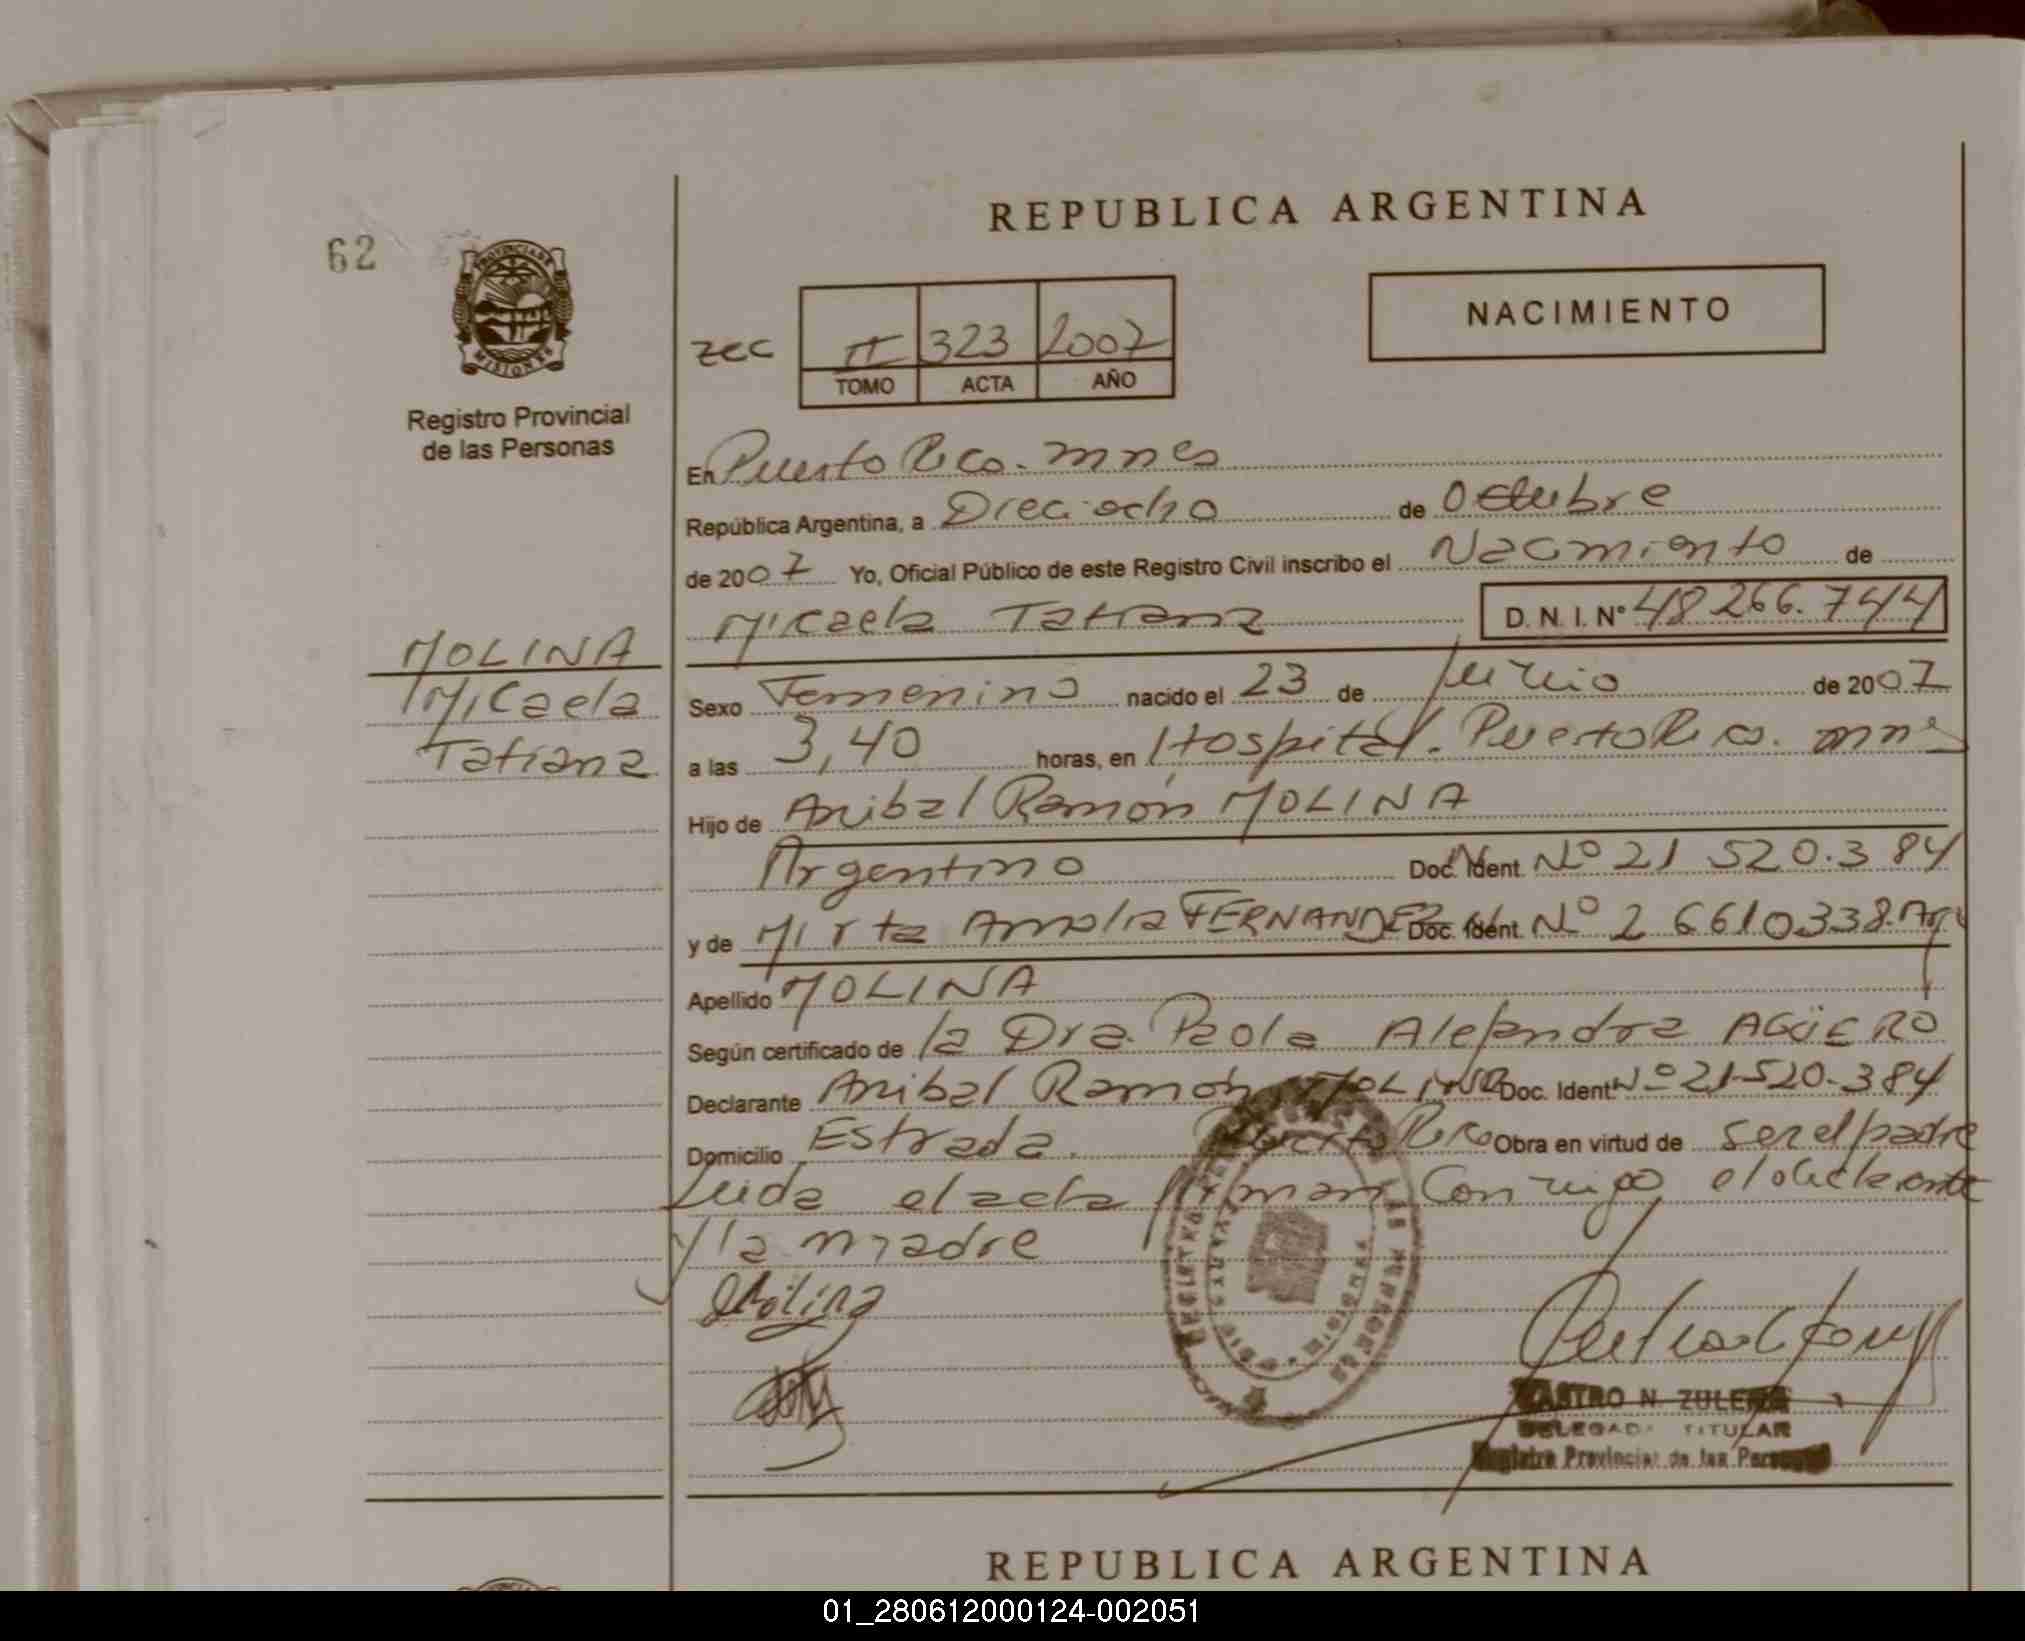 REPUBLICA ARGENTINA
62
PROVINCIA DE
MISIONES
NACIMIENTO
zec II 323 2007
TOMO ACTA AÑO
Registro Provincial
de las Personas
En Puerto Rico. mnes
República Argentina, a Dieciocho de Octubre
de 2007 Yo, Oficial Público de este Registro Civil inscribo el Nacimiento de
Micaela Tatiana D. N. I. Nº 48266.744
MOLINA
Micaela
Tatiana
Sexo Femenino nacido el 23 de de 2007
a las 3,40 horas, en Hospital. Puerto Rico. mnes
Hijo de Anibal Ramón MOLINA
Argentino Doc. Ident. Nº 21 520.384
y de Mirta Amalia FERNANDEZ Doc. Ident. Nº 26610338. Arg
Apellido MOLINA
Según certificado de la Dra. Paola Alejandra AGÜERO
Declarante Anibal Ramón MOLINA Doc. Ident. Nº 21-520.384
Domicilio Estrada. Puerto Rico Obra en virtud de ser el padre
Leida el acta firman conmigo el declarante
y la madre
Molina
CASTRO N. ZULEMA
DELEGADA TITULAR
Registro Provincial de las Personas
REPUBLICA ARGENTINA
01_280612000124-002051